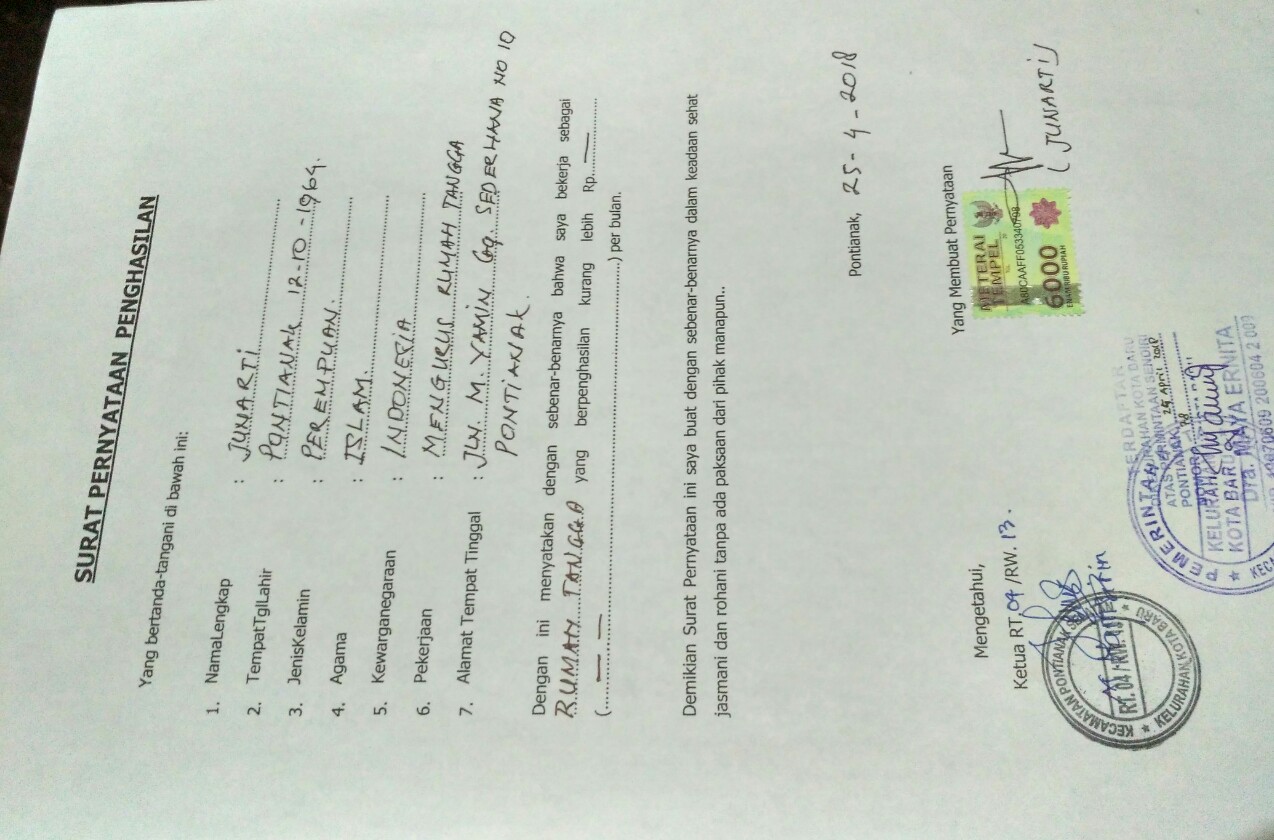 SURAT PERNYATAAN PENGHASILAN
Yang bertanda-tangani di bawah ini:
1. NamaLengkap : JUNARTI
2. TempatTglLahir : PONTIANAK 12-10-1964.
3. JenisKelamin : PEREMPUAN.
4. Agama : ISLAM.
5. Kewarganegaraan : INDONESIA
6. Pekerjaan : MENGURUS RUMAH TANGGA
7. Alamat Tempat Tinggal : JLN. M. YAMIN Gg. SEDERHANA NO 10
PONTIANAK.
Dengan ini menyatakan dengan sebenar-benarnya bahwa saya bekerja sebagai
RUMAH TANGGA yang berpenghasilan kurang lebih Rp. —
( — — ) per bulan.
Demikian Surat Pernyataan ini saya buat dengan sebenar-benarnya dalam keadaan sehat
jasmani dan rohani tanpa ada paksaan dari pihak manapun..
Pontianak, 25-4-2018
Yang Membuat Pernyataan
METERAI
TEMPEL
6000
ENAM RIBU RUPIAH
(JUNARTI)
Mengetahui,
Ketua RT.04/RW.13.
KECAMATAN PONTIANAK
RT.04/RW.
KELURAHAN KOTA BARU
TERDAFTAR
KELURAHAN KOTA BARU
ATAS PERMINTAAN SENDIRI
PONTIANAK, 25 April 2018
NOMOR
KELURAHAN
KOTA BARU
PEMERINTAH
Dra. MAYA ERNITA
200604 2 009